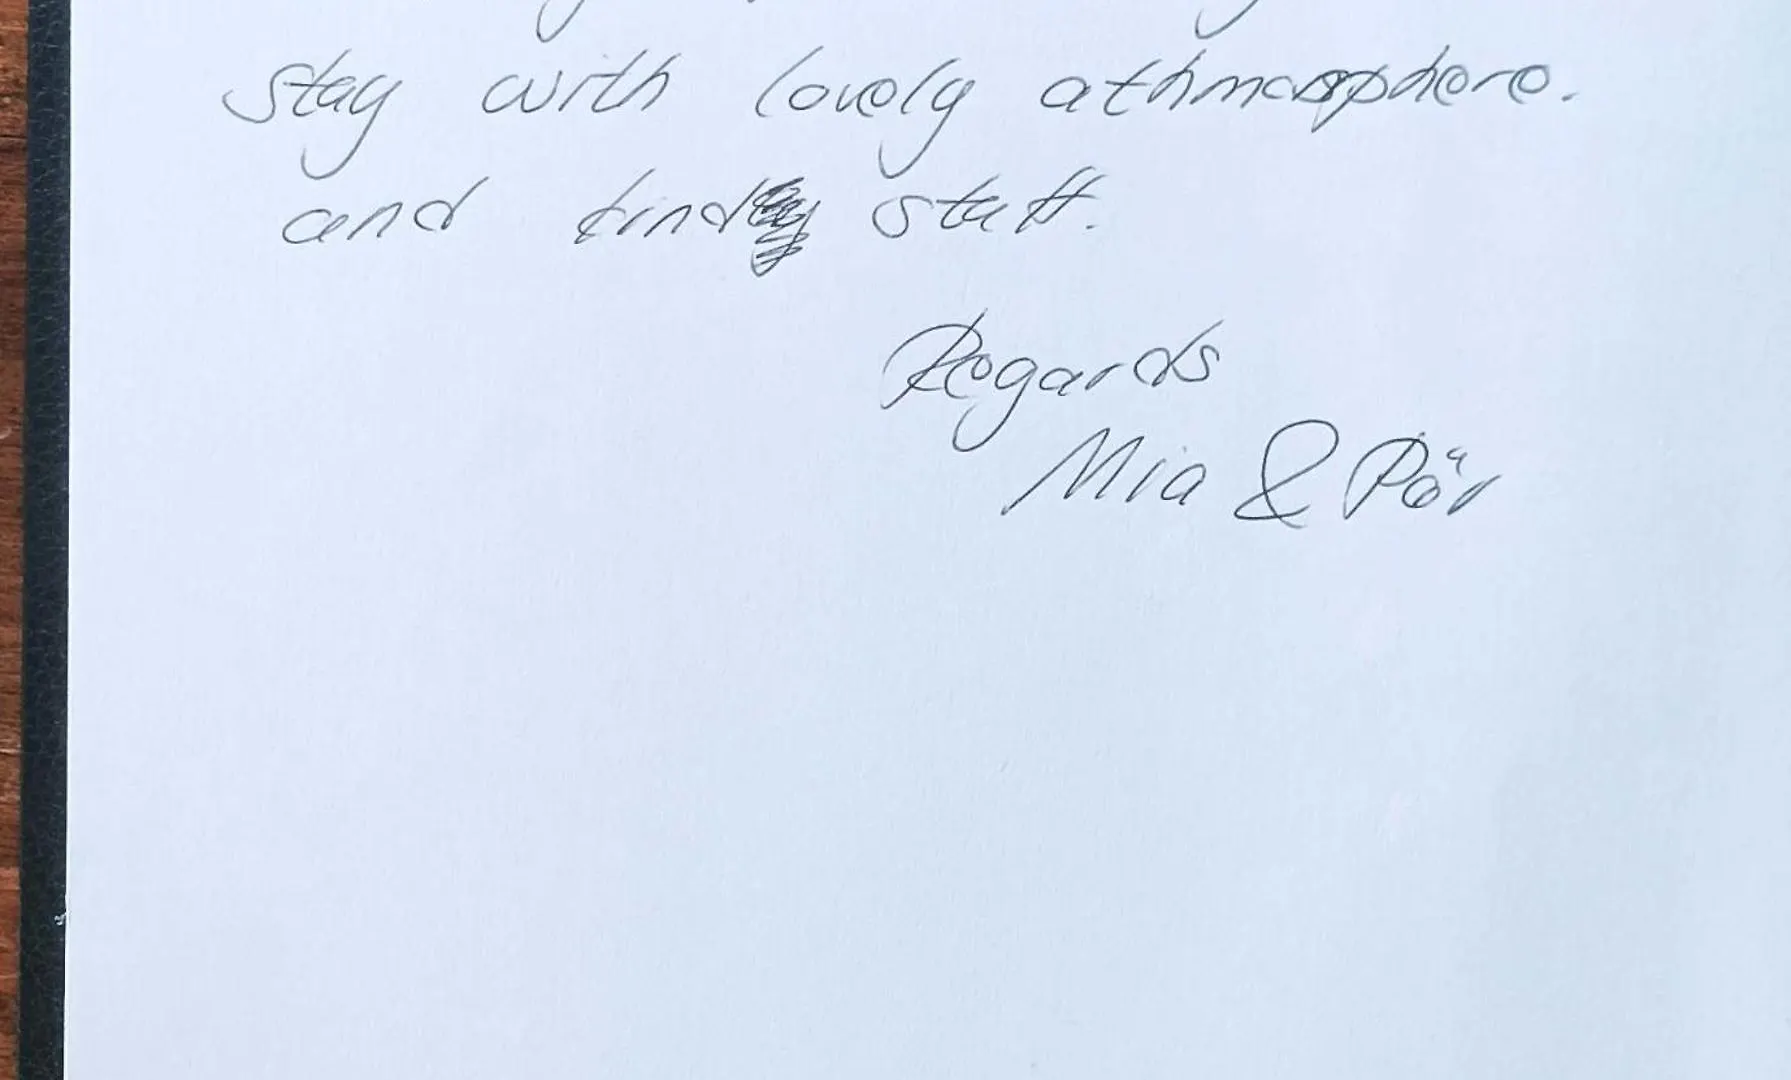 stay with lovely athmosphere.
and kind staff.
Regards
Mia & Pär